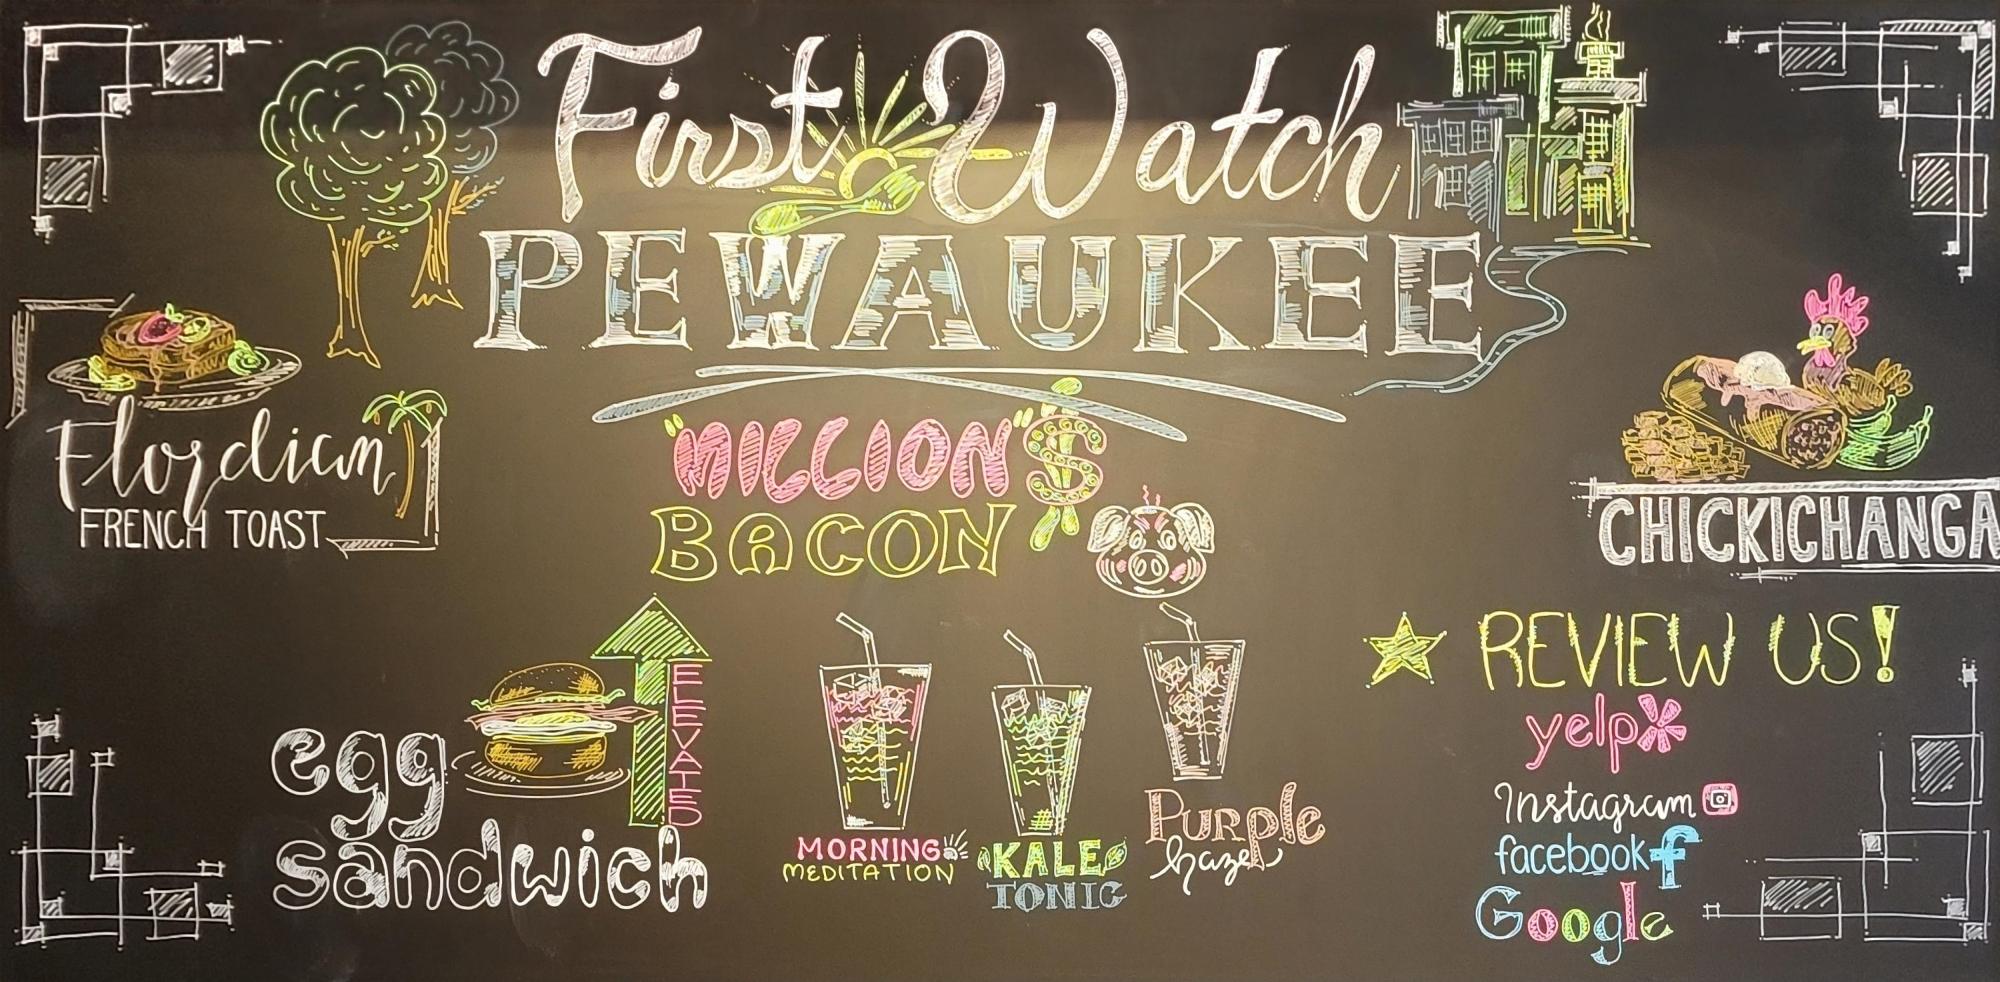 First Watch
PEWAUKEE
Flordian
FRENCH TOAST
"MILLION"$
BACON
CHICKICHANGA
egg
sandwich
ELEVATED
MORNING
MEDITATION
KALE
TONIC
Purple
haze
REVIEW US!
yelp
Instagram
facebook f
Google